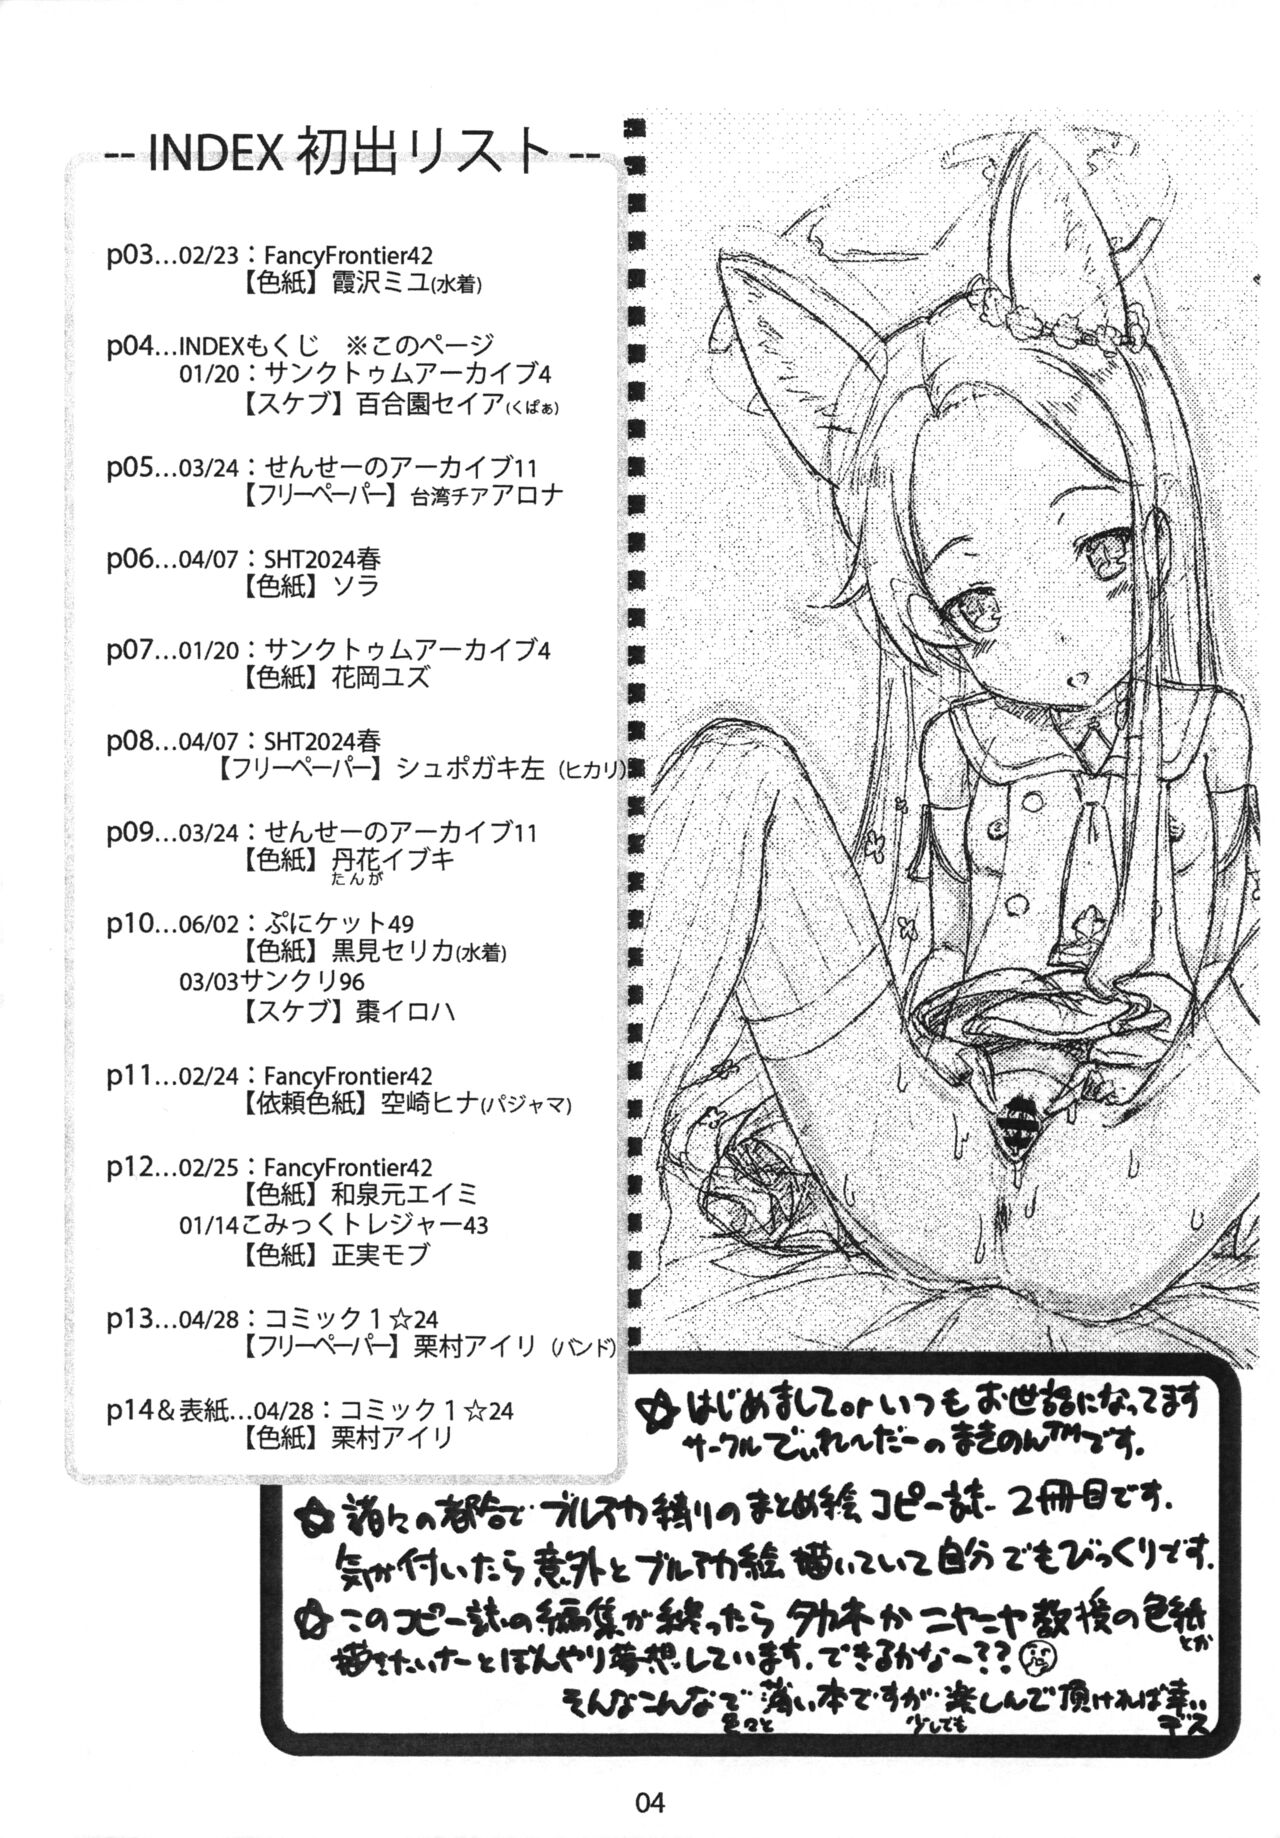 -- INDEX 初出リスト --
p03…02/23：FancyFrontier42
【色紙】霞沢ミユ(水着)
p04…INDEXもくじ　※このページ
01/20：サンクトゥムアーカイブ4
【スケブ】百合園セイア(くぱぁ)
p05…03/24：せんせーのアーカイブ11
【フリーペーパー】台湾チアアロナ
p06…04/07：SHT2024春
【色紙】ソラ
p07…01/20：サンクトゥムアーカイブ4
【色紙】花岡ユズ
p08…04/07：SHT2024春
【フリーペーパー】シュポガキ左（ヒカリ）
p09…03/24：せんせーのアーカイブ11
【色紙】丹花イブキ
たんが
p10…06/02：ぷにケット49
【色紙】黒見セリカ(水着)
03/03サンクリ96
【スケブ】棗イロハ
p11…02/24：FancyFrontier42
【依頼色紙】空崎ヒナ(パジャマ)
p12…02/25：FancyFrontier42
【色紙】和泉元エイミ
01/14こみっくトレジャー43
【色紙】正実モブ
p13…04/28：コミック１☆24
【フリーペーパー】栗村アイリ（バンド）
p14＆表紙…04/28：コミック１☆24
【色紙】栗村アイリ
☆はじめましてorいつもお世話になってます
サークルでぃれ～だーのまきのん™です。
☆諸々の都合でブルアカ縛りのまとめ絵コピー誌2冊目です。
気が付いたら意外とブルアカ絵描いていて自分でもびっくりです。
☆このコピー誌の編集が終ったらタカネかニヤニヤ教授の色紙とか
描きたいなーとぼんやり夢想しています。できるかなー??
そんなこんなで薄い本ですが楽しんで頂ければ幸い
色々と 少しでも デス
04